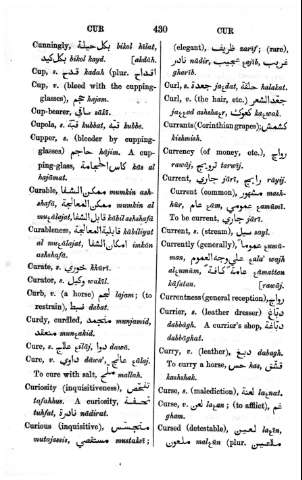 CUR 430 CUR
Cunningly, بكل حيلة bikol hilat,
بكل كيد bikol kayd. [akdāḥ.
Cup, s. قدح kadaḥ (plur. اقداح
Cup, v. (bleed with the cupping-
glasses), حجم ḥajem.
Cup-bearer, ساقي sākī.
Cupola, s. قبة kubbat, قبه kubbe.
Cupper, s. (bleeder by cupping-
glasses) حاجم ḥājim. A cup-
ping-glass, كاس الحجامة kās al
ḥajāmat.
Curable, ممكن الشفا mumkin ash-
shafā, ممكن المعالجة mumkin al
muعālajat, قابل الشفا kābil ashshafā.
Curableness, قابلية المعالجة kābiliyat
al muعālajat, امكان الشفا imkān
ashshafā.
Curate, s. خوري khūrī.
Curator, s. وكيل wakīl.
Curb, v. (a horse) لجم lajam; (to
restrain) ضبط dabat.
Curdy, curdled, منجمد munjamid,
منعقد munعakid.
Cure, s. علاج عilāj, دوا dawā.
Cure, v. داوى dāwa', عالج عālaj.
To cure with salt, ملح mallaḥ.
Curiosity (inquisitiveness), تفحص
tafaḥhus. A curiosity, تحفة
tuhfat, نادرة nādirat.
Curious (inquisitive), متجسس
mutajassis, مستقصي mustaksī;
(elegant), ظريف zarīf; (rare)
نادر nādir, عجيب عajīb, غريب
gharīb.
Curl, s. جعدة jaعdat, حلقة halakat.
Curl, v. (the hair, etc.) جعد الشعر
jaععad ashshaعr, كعوك kaعwak.
Currants (Corinthian grapes), كشمش
kishmish.
Currency (of money, etc.), رواج
rawāj, ترويج tarwīj.
Current, جاري jārī, رايج rāyij.
Current (common), مشهور mash-
hūr, عام عām, عمومي عomūmī.
To be current, جاري jārī.
Current, s. (stream), سيل sayl.
Currently (generally), عموما عomūman,
علي وجه العموم عala' wajh
alعomūm, عامة كافة عāmatten
kāfatan. [rawāj.
Currentness (general reception), رواج
Currier, s. (leather dresser) دباغ
dabbāgh. A currier's shop, دباغة
dabbāghat.
Curry, v. (leather), دبغ dabagh.
To curry a horse, حس ḥas, قشق
kashshak.
Curse, s. (malediction), لعنة laعnat.
Curse, v. لعن laعan; (to afflict), غم
gham.
Cursed (detestable), لعين laعīn,
ملعون malعūn (plur. ملاعين